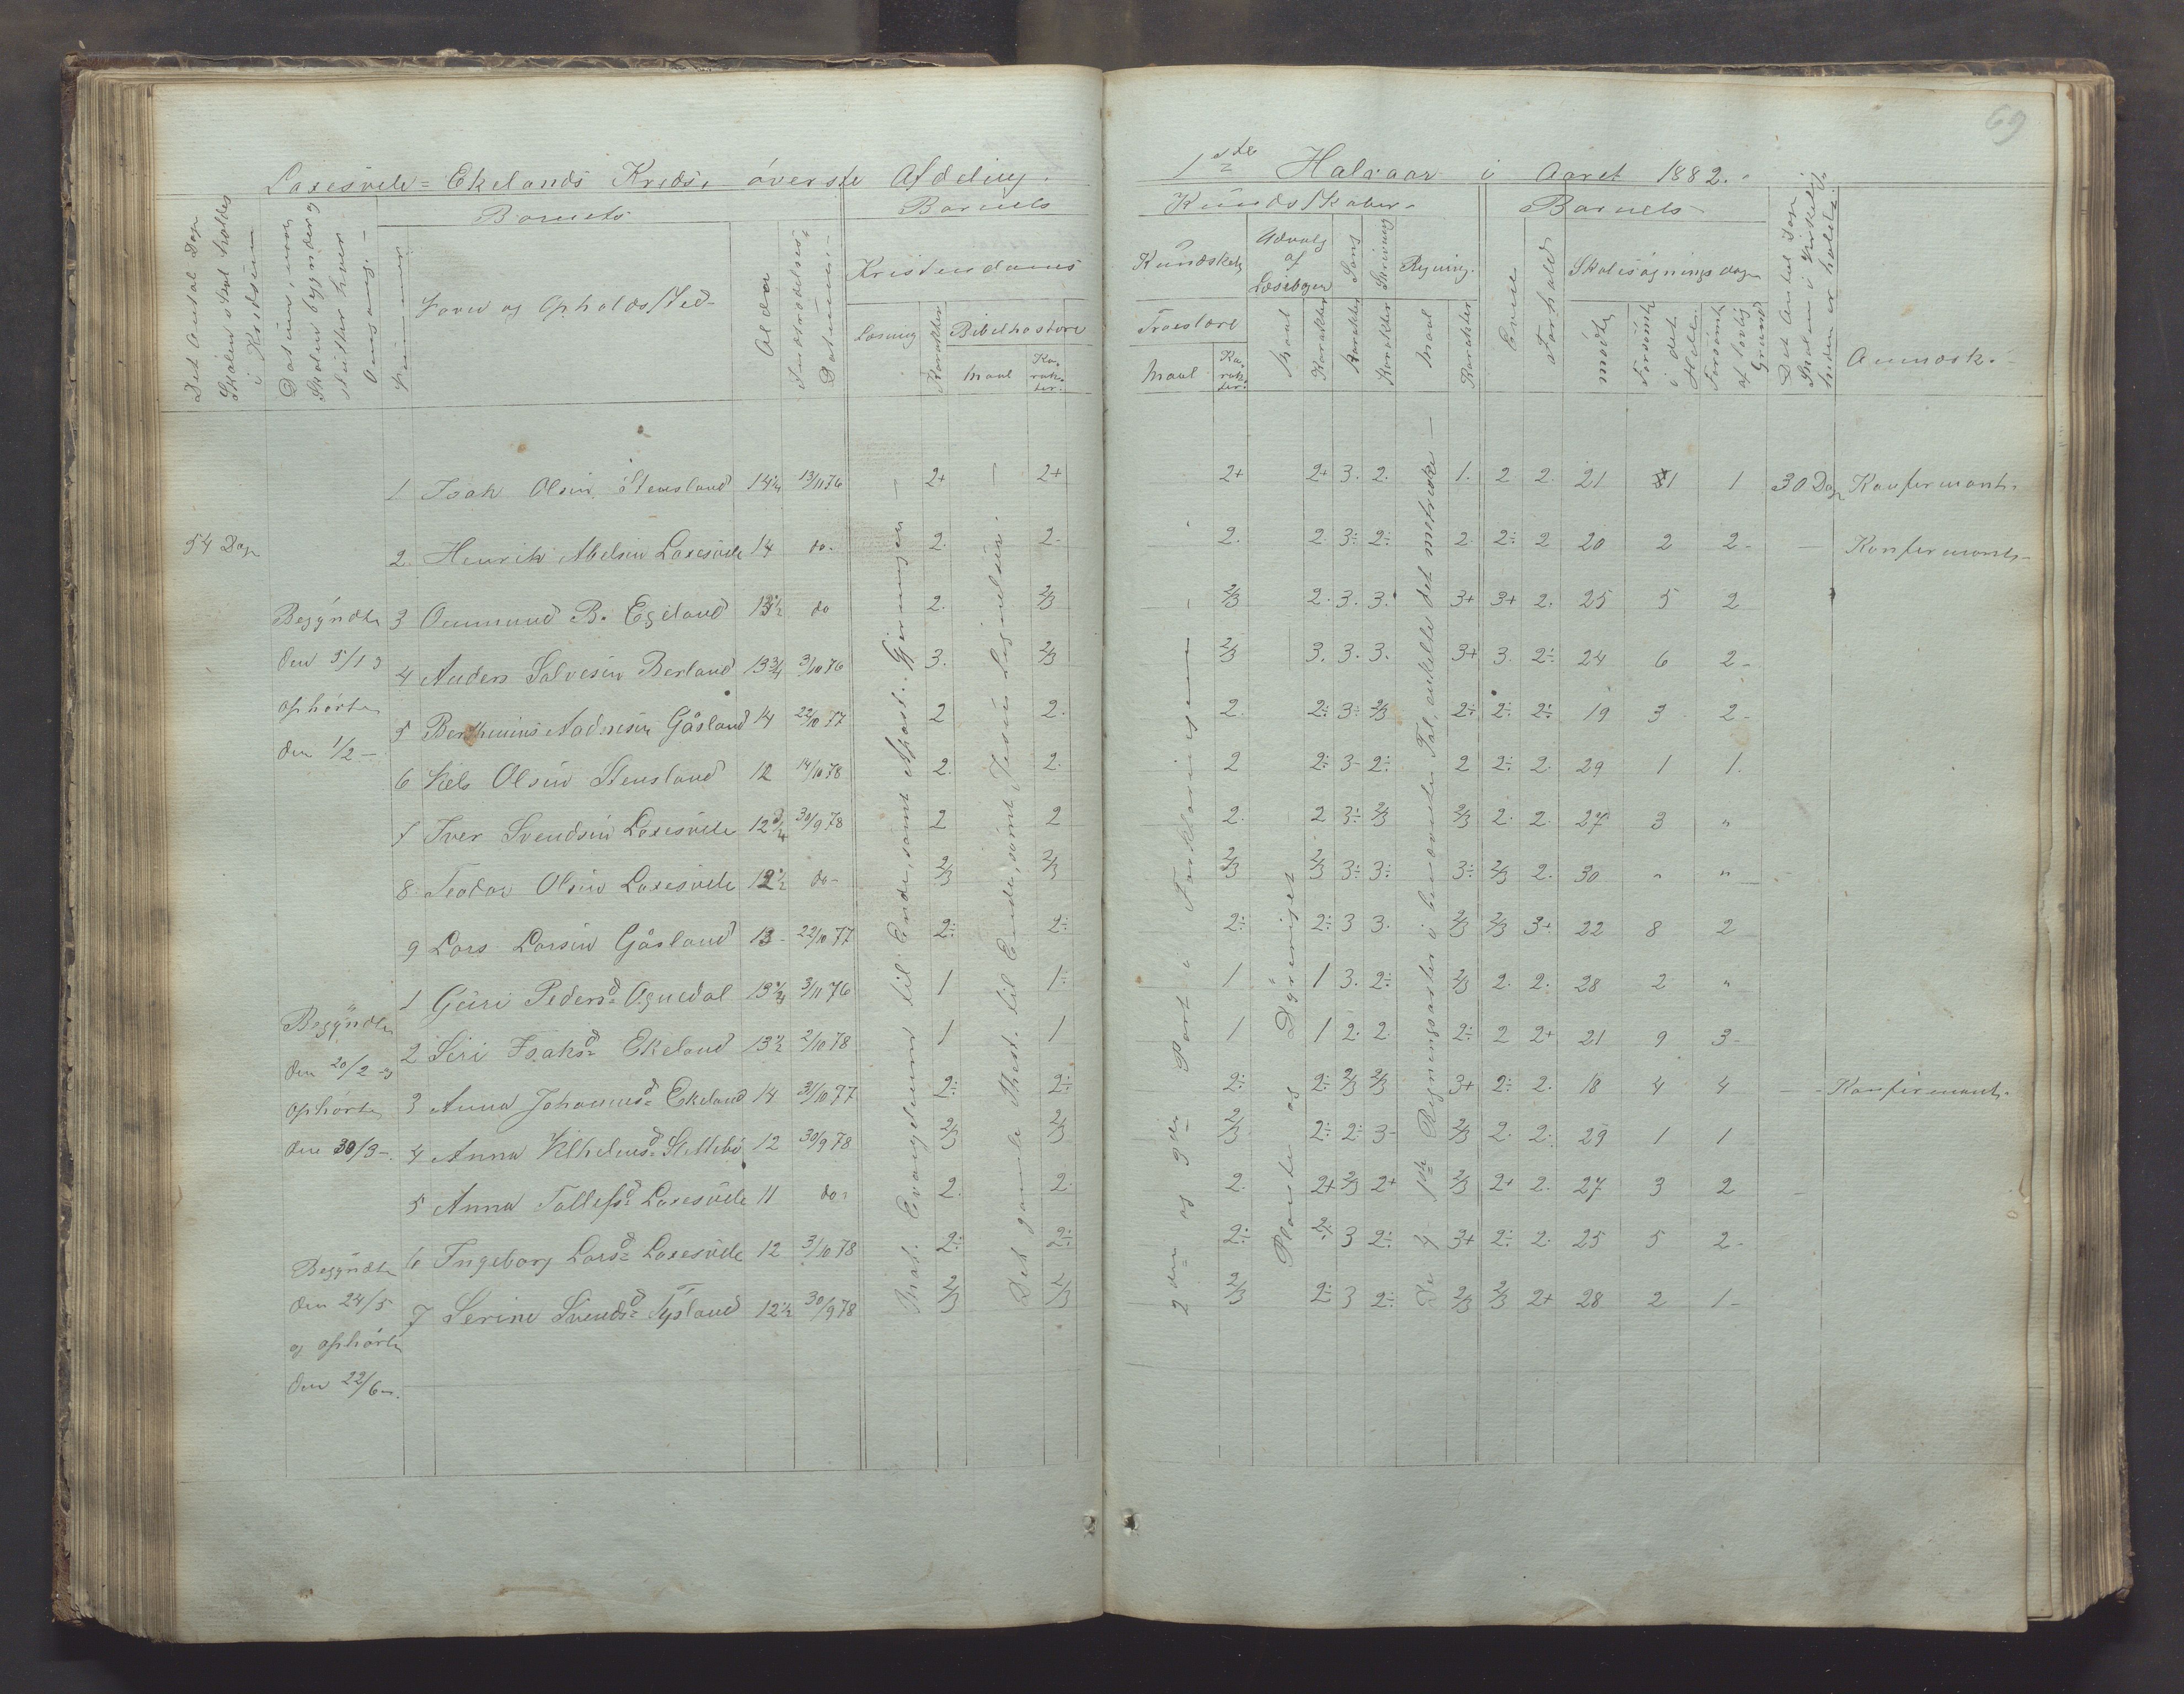 69
Laxesvele = Ekelands Kreds, øverste Afdeling.
1ste Halvaar i Aaret 1882.
Det Antal Dage Skolen skal holdes i Kredsen
Datum, naar Skolen begynder og slutter hver Omgang.
Barnets
Nummer
Navn og Opholdssted
Alder
Indtrædelses Datum.
Barnets
Kristendoms
Læsning
Karakter
Bibelhistorie
Maal
Karakter.
Kundskaber.
Kundskab
Troeslære
Maal
Karakter.
Udvalg af Læsebogen
Maal
Karakter
Sang
Karakter
Skrivning
Karakter
Regning.
Maal
Karakter
Barnets
Evner
Forhold
Skolesøgningsdage
mødte
Forsømte i det Hele.
Forsømte af lovlig Grund
Det Antal Dage Skolen i Virkeligheden er holdt.
Anmærk.
54 Dage
Begyndte
den 5/1 og
ophørte
den 1/2 –
Begyndte
den 20/2 og
ophørte
den 30/3 –.
Begyndte
den 24/5
og ophørte
den 22/6 –.
Mat. Evangelium til Ende, samt Apost. Gjerninger
Det gamle Thest. til Ende, samt Jesus Lignelser.
2den og 3die Part i Forklaringen
Planter og Dyreriget
De 4 Regningsarter i benævnte Tal, enkelte det metriske –
1 Isak Olsen Stensland 14¼ 13/11 76 2+ 2+ 2+ 2+ 3. 2. 1. 2 2. 21 1 1 30 Dage Konfirmant.
2. Henrik Abelsen Laxesvele 14 do. 2. 2. 2. 2. 3÷ 2÷ 2. 2÷ 2 20 2 2 – Konfirmant
3 Ommund B. Egeland 13½ do 2. 2/3 2/3 2. 3. 3. 3+ 3+ 2. 25 5 2
4 Anders Salvesen Berland 13¾ 3/10 76 3. 2/3 2/3 3. 3. 3. 3+ 3. 2÷ 24 6 2
5 Berthinius Aadnesen Gåsland 14 22/10 77 2 2. 2. 2÷ 3÷ 2/3 2÷ 2÷ 2÷ 19 3 2
6 Nels Olsen Stensland 12 14/10 78 2. 2. 2 2÷ 3 2÷ 2 2÷ 2. 29 1 1.
7 Iver Svendsen Laxesvele 12¾ 30/9 78 2 2 2. 2 3÷ 2/3 2/3 2. 2. 27 3 "
8. Teodor Olsen Laxesvele 12½ do 2/3 2/3 2/3 2/3 3÷ 3÷ 3÷ 2/3 2. 30 " "
9 Lars Larsen Gåsland 13 22/10 77 2÷ 2÷ 2÷ 2÷ 3 3. 2/3 2/3 3+ 22 8 2
1 Guri Pedersd. Ognedal 13½ 3/11 76 1 1÷ 1 1 3. 2÷ 2/3 2. 2. 28 2 "
2 Siri Isaksd. Ekeland 13½ 2/10 78 1 1 1 1 2. 2. 2÷ 2 2+ 21 9 3
3 Anna Johannesd. Ekeland 14 31/10 77 2÷ 2÷ 2÷ 2÷ 2/3 2/3 3+ 2÷ 2. 18 4 4 – Konfirmant.
4 Anna Vilhelmsd. Slettebø 12 30/9 78 2/3 2/3 2/3 2÷ 2÷ 3 2/3 2. 2. 29 1 1
5 Anna Tollefsd. Laxesvele 11 do. 2. 2. 2. 2+ 2/3 2+ 2/3 2+ 2. 27 3 2
6 Ingeborg Larsd. Laxesvele 12 31/10 78 2÷ 2÷ 2÷ 2÷ 3 2÷ 3+ 2÷ 2. 25 5 2
7 Serine Svendsd. Tysland 12½ 30/9 78 2/3 2/3 2/3 2÷ 3 2÷ 2/3 2/3 2+ 28 2 1